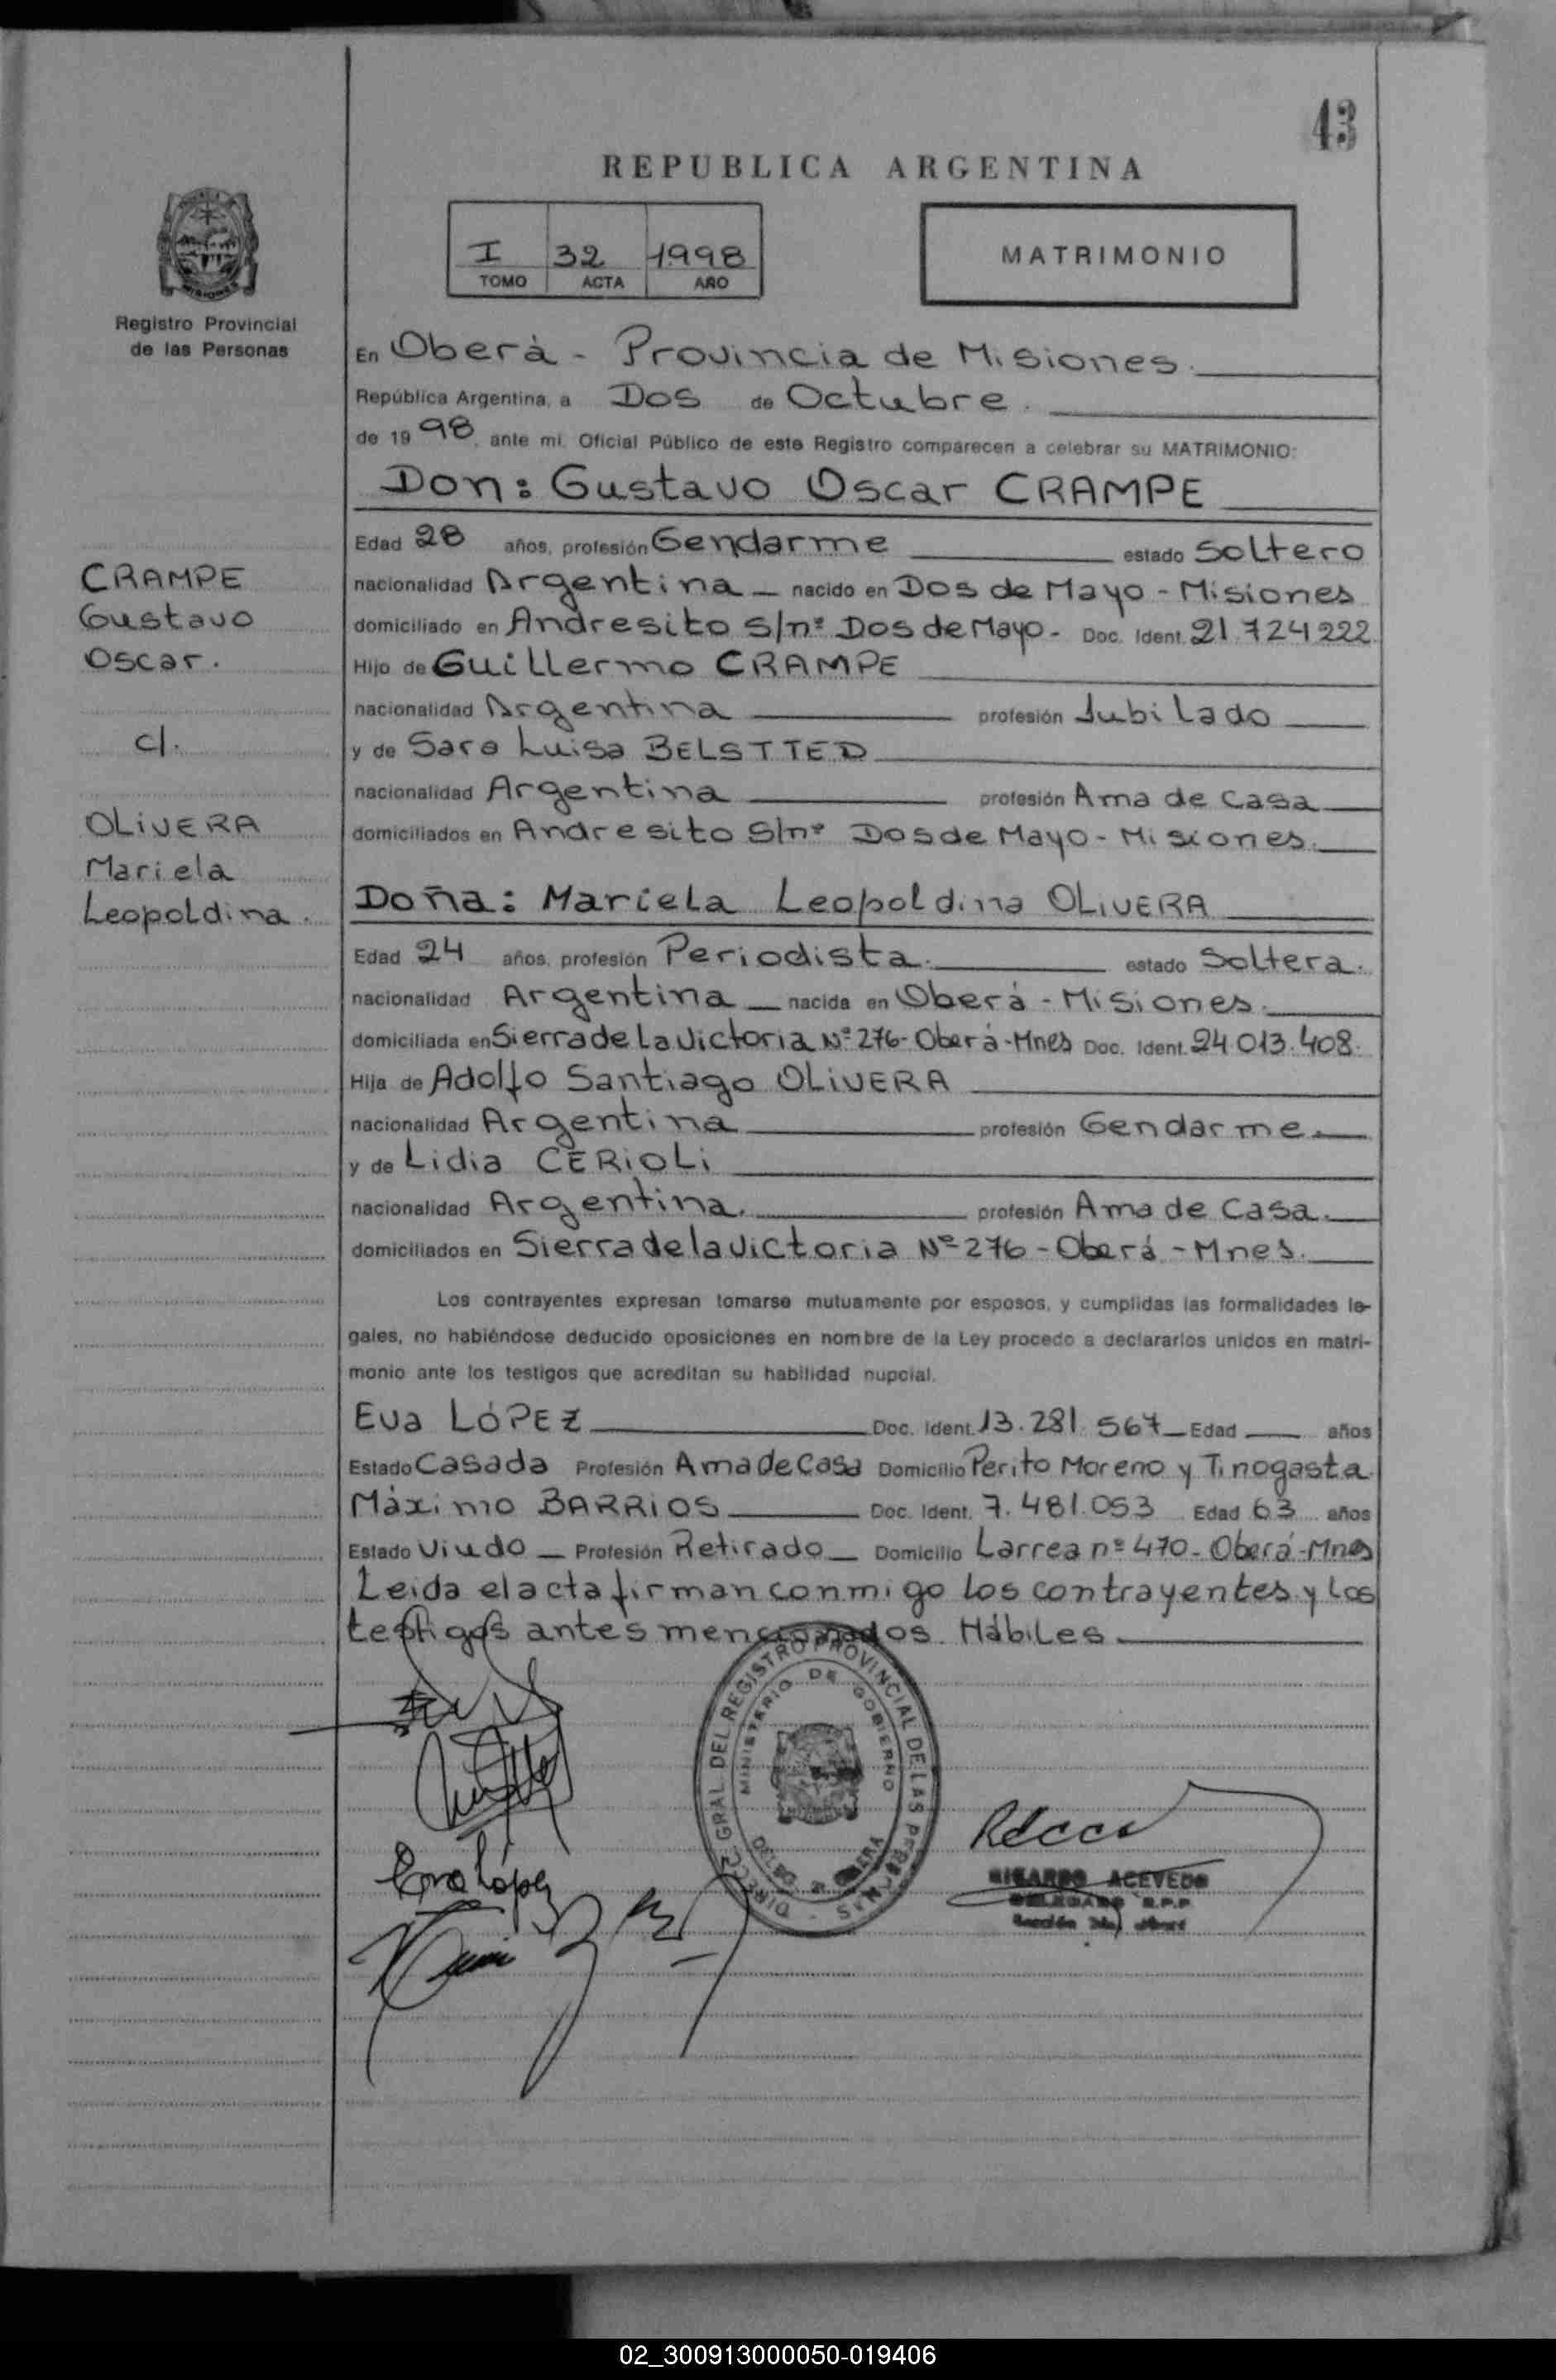 43
REPUBLICA ARGENTINA
I 32 1998
TOMO ACTA AÑO
MATRIMONIO
MISIONES
Registro Provincial
de las Personas
En Oberá - Provincia de Misiones.
República Argentina, a Dos de Octubre.
de 1998, ante mi, Oficial Público de este Registro comparecen a celebrar su MATRIMONIO:
Don: Gustavo Oscar CRAMPE
Edad 28 años, profesión Gendarme estado Soltero
nacionalidad Argentina nacido en Dos de Mayo - Misiones
domiciliado en Andresito S/nº Dos de Mayo - Doc. Ident. 21.724.222
Hijo de Guillermo CRAMPE
nacionalidad Argentina profesión Jubilado
y de Sara Luisa BELSTTED
nacionalidad Argentina profesión Ama de Casa
domiciliados en Andresito S/nº Dos de Mayo - Misiones.
Doña: Mariela Leopoldina OLIVERA
Edad 24 años, profesión Periodista. estado Soltera.
nacionalidad Argentina nacida en Oberá - Misiones.
domiciliada en Sierra de La Victoria Nº 276 - Oberá - Mnes Doc. Ident. 24.013.408.
Hija de Adolfo Santiago OLIVERA
nacionalidad Argentina profesión Gendarme.
y de Lidia CERIOLI
nacionalidad Argentina. profesión Ama de Casa.
domiciliados en Sierra de la Victoria Nº 276 - Oberá - Mnes.
Los contrayentes expresan tomarse mutuamente por esposos, y cumplidas las formalidades le-
gales, no habiéndose deducido oposiciones en nombre de la Ley procedo a declararlos unidos en matri-
monio ante los testigos que acreditan su habilidad nupcial.
Eva LÓPEZ Doc. Ident. 13.281.567 Edad años
Estado Casada Profesión Ama de Casa Domicilio Perito Moreno y Tinogasta.
Máximo BARRIOS Doc. Ident. 7.481.053 Edad 63 años
Estado Viudo Profesión Retirado Domicilio Larrea nº 470 - Oberá - Mnes
Leida el acta firman conmigo los contrayentes y los
testigos antes mencionados. Hábiles.
CRAMPE
Gustavo
Oscar.
c/.
OLIVERA
Mariela
Leopoldina.
DIRECC. GRAL. DEL REGISTRO PROVINCIAL DE LAS PERSONAS
MINISTERIO DE GOBIERNO
Eva López
RICARDO ACEVEDO
DELEGADO R.P.P.
02_300913000050-019406